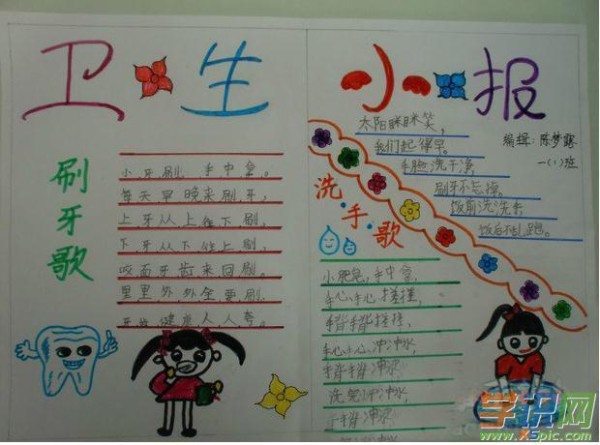 卫生
小报
编辑：陈梦露
一（1）班
刷牙歌
小牙刷，手中拿。
每天早晚来刷牙，
上牙从上往下刷，
下牙从下往上刷，
咬面牙齿来回刷。
里里外外全要刷，
牙齿健康人人夸。
太阳眯眯笑，
我们起得早。
手脸洗干净，
刷牙不忘掉。
饭前洗洗手，
饭后不乱跑。
洗手歌
小肥皂，手中拿，
手心手心搓搓，
手背手背搓搓，
手心手心冲冲水，
手背手背冲冲水，
洗完冲冲水，
学识网
www.xspic.com